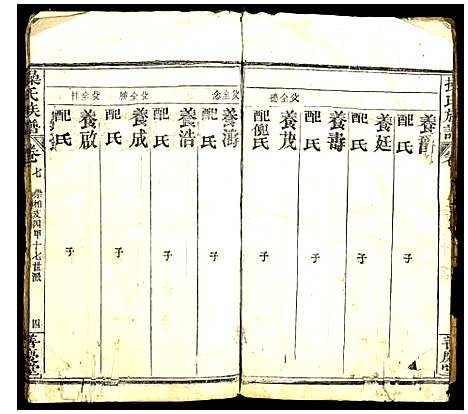 族譜
父全德
養
配氏
子
養廷
配氏
子
養壽
配氏
子
養茂
配倪氏
子
父全念
養濤
配氏
子
養浩
配氏
子
父全
養成
配氏
子
養啟
配氏
子
父全
氏族譜
卷七
崇相支四甲十七世派
四
善慶堂